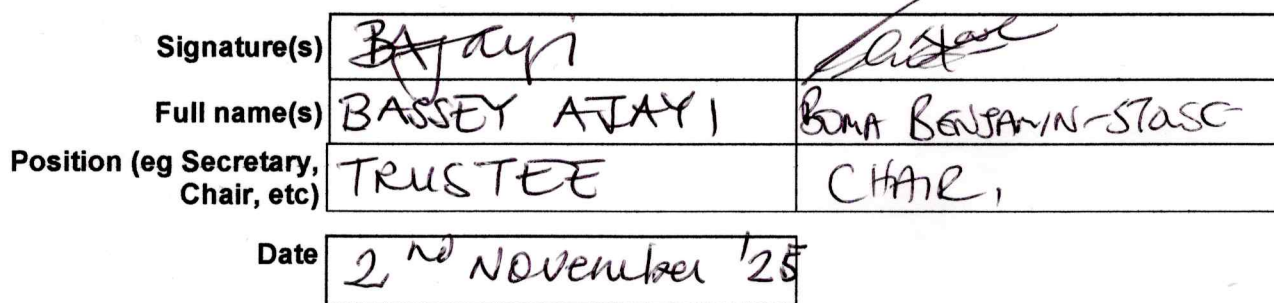 Signature(s) BAjayi
Full name(s) BASSEY AJAYI BOMA BENJAMIN-
Position (eg Secretary,
Chair, etc) TRUSTEE CHAIR,
Date 2nd NOVEMBER '25